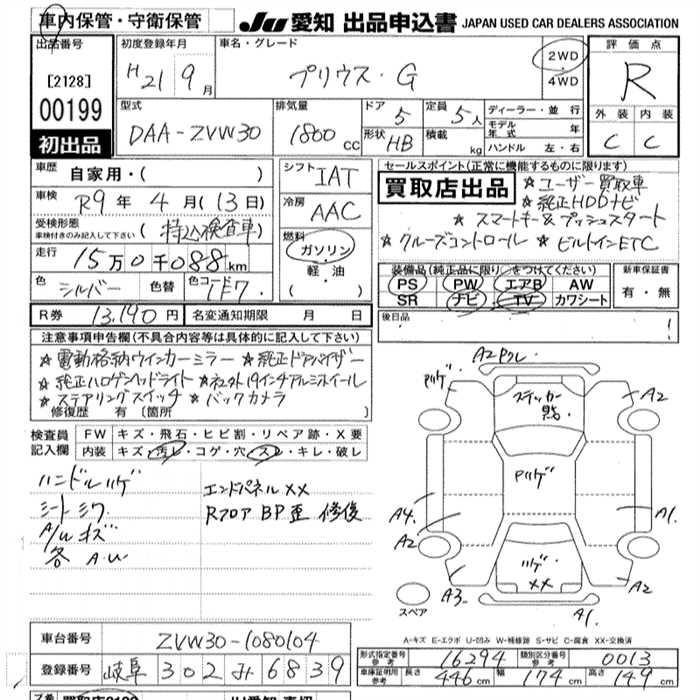 車内保管・守衛保管
JU 愛知 出品申込書 JAPAN USED CAR DEALERS ASSOCIATION
出品番号
[2128]
00199
初出品
初度登録年月
H21 9月
車名・グレード
プリウス・G
2WD
・
4WD
評価点
R
外装 内装
C C
型式
DAA-ZVW30
排気量
1800cc
ドア 5
形状 HB
定員 5人
積載 kg
ディーラー・並行
モデル年式 年
ハンドル 左・右
車歴 自家用・( )
車検 R9年4月(13日)
受検形態
車検付きのみ記入して下さい (持込検査車)
走行 15万0千088km
色 シルバー 色替 色コード 1F7
R券 13,190円 名変通知期限 月 日
シフト IAT
冷房 AAC
燃料 ガソリン
・
軽・油
( )
セールスポイント(正常に機能するものに限ります)
買取店出品
☆ユーザー買取車
☆純正HDDナビ
☆スマートキー&プッシュスタート
☆クルーズコントロール ☆ビルトインETC
装備品(純正品に限り○をつけてください)
PS PW エアB AW
SR ナビ TV カワシート
新車保証書
有・無
後日品
注意事項申告欄(不具合内容等は具体的に記入して下さい)
☆電動格納ウインカーミラー ☆純正ドアバイザー
☆純正ハロゲンヘッドライト ☆社外19インチアルミホイール
☆ステアリングスイッチ ☆バックカメラ
修復歴 有 〔箇所 〕
検査員記入欄
FW キズ・飛石・ヒビ割・リペア跡・X要
内装 キズ・汚レ・コゲ・穴・スレ・キレ・破レ
ハンドルハゲ
シートシワ
A/Wキズ
各 A.U
エンドパネルXX
Rフロア BP歪 修復
A2Pクレ
Pハゲ
ステッカー跡
A2
Pハゲ
A4
A2
A1
ハゲ
XX
A3
A2
A1
スペア
A-キズ E-エクボ U-凹み W-補修跡 S-サビ C-腐食 XX-交換済
車台番号 ZVW30-1080104
登録番号 岐阜 302 み 6839
形式指定番号 参考 16294 類別区分番号 参考 0013
車庫証明用 参考 長さ 446cm 幅 174cm 高さ 149cm